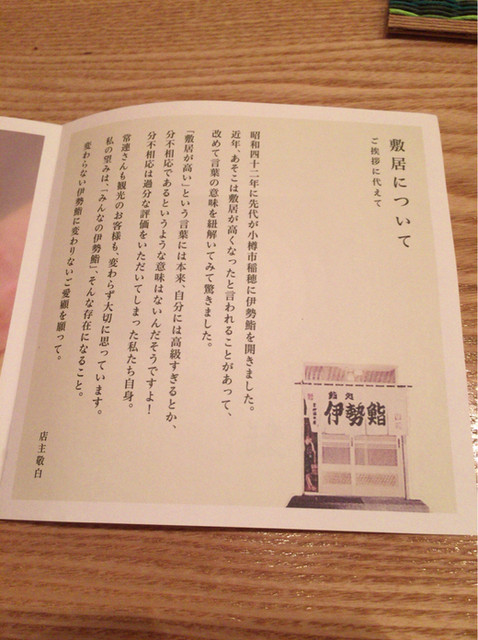 敷居について
ご挨拶に代えて
昭和四十二年に先代が小樽市稲穂に伊勢鮨を開きました。
近年、あそこは敷居が高くなったと言われることがあって、
改めて言葉の意味を紐解いてみて驚きました。
「敷居が高い」という言葉には本来、自分には高級すぎるとか、
分不相応であるというような意味はないんだそうですよ！
分不相応は過分な評価をいただいてしまった私たち自身。
常連さんも観光のお客様も、変わらず大切に思っています。
私の望みは、「みんなの伊勢鮨」、そんな存在になること。
変わらない伊勢鮨に変わりないご愛顧を願って。
店主敬白
鮨処
伊勢鮨